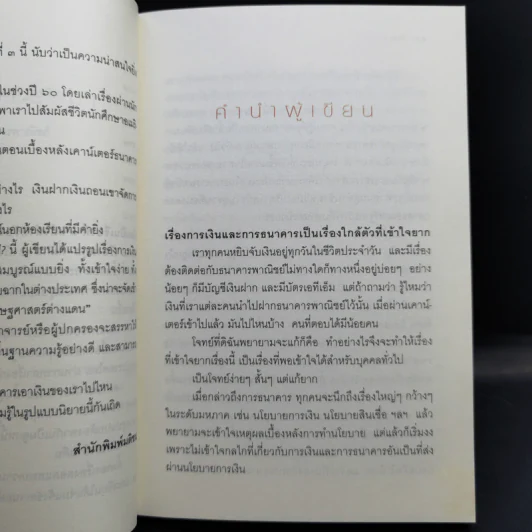 ที่ ๓ นี้ นับว่าเป็นความน่าสนใจ
ในช่วงปี ๖๐ โดยเล่าเรื่องผ่าน
พาเราไปสัมผัสชีวิตนักศึกษา
น
ตอนเบื้องหลังเคาน์เตอร์ธนาคาร
างไร เงินฝากเงินถอนเขาจัดการ
งไร
นอกห้องเรียนที่มีค่ายิ่ง
? นี้ ผู้เขียนได้แปรรูปเรื่องการเงิน
มบูรณ์แบบยิ่ง ทั้งเข้าใจง่าย
ฉากในต่างประเทศ ซึ่งน่าจะจัด
ษฐศาสตร์ต่างแดน”
าจารย์หรือผู้ปกครองจะสรรหา
นฐานความรู้อย่างดี และสามารถ
คารเอาเงินของเราไปไหน
มรู้ในรูปแบบนิยายนี้กันเถิด
สำนักพิมพ์มติชน
คำนำผู้เขียน
เรื่องการเงินและการธนาคารเป็นเรื่องใกล้ตัวที่เข้าใจยาก
เราทุกคนหยิบจับเงินอยู่ทุกวันในชีวิตประจำวัน และมีเรื่อง
ต้องติดต่อกับธนาคารพาณิชย์ไม่ทางใดก็ทางหนึ่งอยู่บ่อยๆ อย่าง
น้อยๆ ก็มีบัญชีเงินฝาก และมีบัตรเอทีเอ็ม แต่ถ้าถามว่า รู้ไหมว่า
เงินที่เราแต่ละคนนำไปฝากธนาคารพาณิชย์ไว้นั้น เมื่อผ่านเคาน์-
เตอร์เข้าไปแล้ว มันไปไหนบ้าง คนที่ตอบได้มีน้อยคน
โจทย์ที่ดิฉันพยายามจะแก้ก็คือ ทำอย่างไรจึงจะทำให้เรื่อง
ที่เข้าใจยากเรื่องนี้ เป็นเรื่องที่พอเข้าใจได้สำหรับบุคคลทั่วไป
เป็นโจทย์ง่ายๆ สั้นๆ แต่แก้ยาก
เมื่อกล่าวถึงการธนาคาร ทุกคนจะนึกถึงเรื่องใหญ่ๆ กว้างๆ
ในระดับมหภาค เช่น นโยบายการเงิน นโยบายสินเชื่อ ฯลฯ แล้ว
พยายามจะเข้าใจเหตุผลเบื้องหลังการทำนโยบาย แต่แล้วก็เริ่มงง
เพราะไม่เข้าใจกลไกที่เกี่ยวกับการเงินและการธนาคารอันเป็นที่ส่ง
ผ่านนโยบายการเงิน